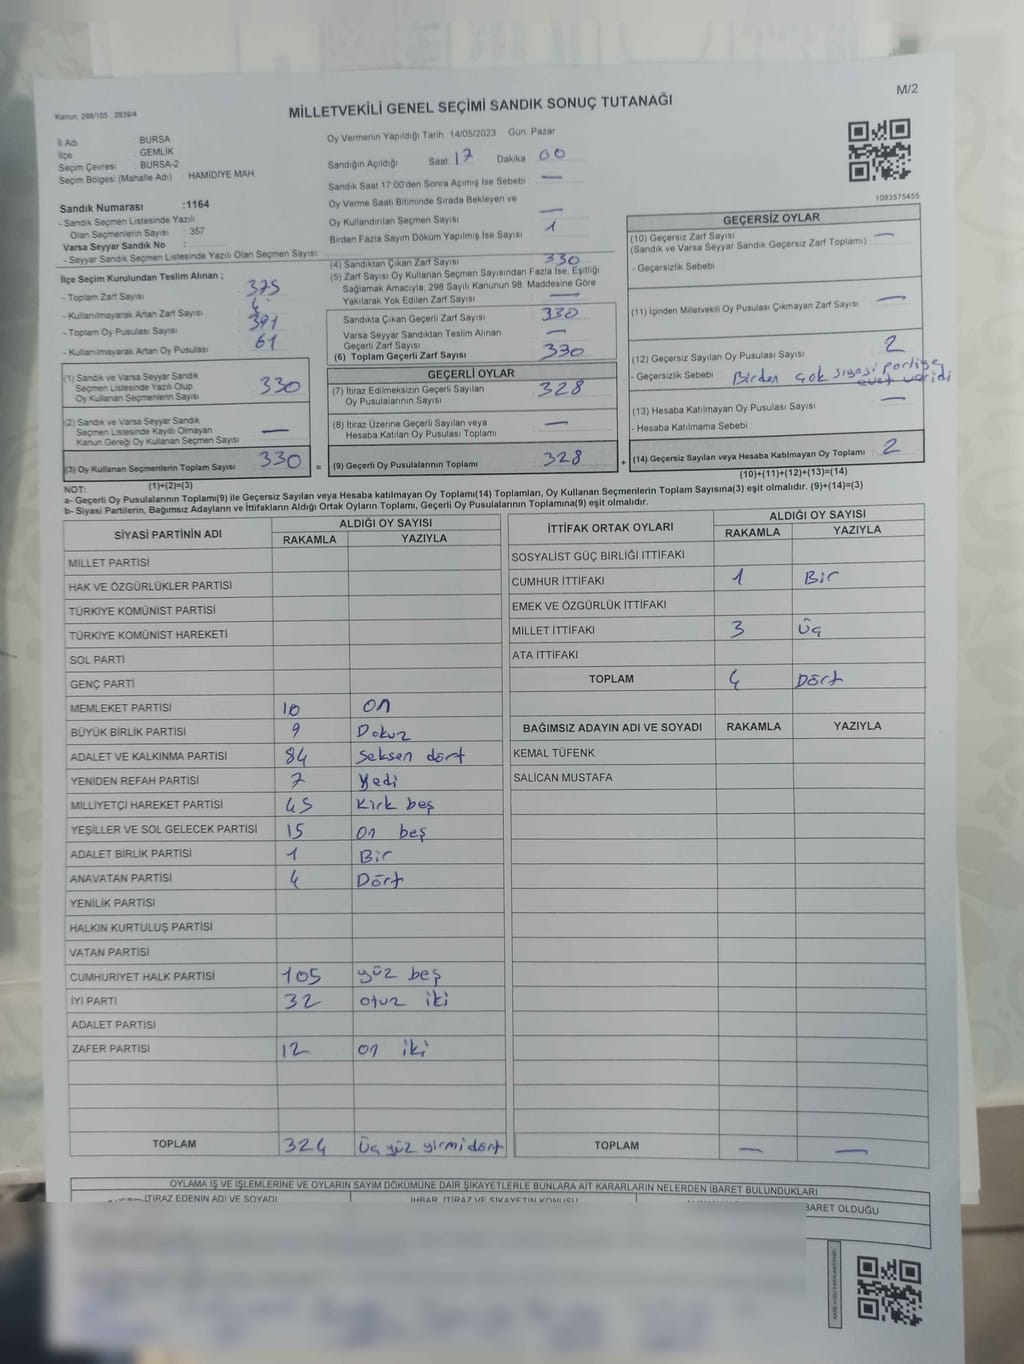 M/2
Kanun, 298/105 , 2839/4
MİLLETVEKİLİ GENEL SEÇİMİ SANDIK SONUÇ TUTANAĞI
İl Adı : BURSA
İlçe : GEMLİK
Seçim Çevresi : BURSA-2
Seçim Bölgesi (Mahalle Adı) : HAMİDİYE MAH.
Sandık Numarası :1164
- Sandık Seçmen Listesinde Yazılı
Olan Seçmenlerin Sayısı : 357
Varsa Seyyar Sandık No :
- Seyyar Sandık Seçmen Listesinde Yazılı Olan Seçmen Sayısı:
Oy Vermenin Yapıldığı Tarih : 14/05/2023 Gün: Pazar
Sandığın Açıldığı Saat 17 Dakika 00
Sandık Saat 17:00'den Sonra Açımış İse Sebebi : —
Oy Verme Saati Bitiminde Sırada Bekleyen ve
Oy Kullandırılan Seçmen Sayısı : —
Birden Fazla Sayım Döküm Yapılmış İse Sayısı : 1
1083575455
İlçe Seçim Kurulundan Teslim Alınan ;
- Toplam Zarf Sayısı : 375
- Kullanılmayarak Artan Zarf Sayısı :
- Toplam Oy Pusulası Sayısı : 391
- Kullanılmayarak Artan Oy Pusulası : 61
(1) Sandık ve Varsa Seyyar Sandık
Seçmen Listesinde Yazılı Olup
Oy Kullanan Seçmenlerin Sayısı : 330
(2) Sandık ve Varsa Seyyar Sandık
Seçmen Listesinde Kayıtlı Olmayan
Kanun Gereği Oy Kullanan Seçmen Sayısı : —
(3) Oy Kullanan Seçmenlerin Toplam Sayısı : 330
(1)+(2)=(3)
(4) Sandıktan Çıkan Zarf Sayısı : 330
(5) Zarf Sayısı Oy Kullanan Seçmen Sayısından Fazla İse, Eşitliği
Sağlamak Amacıyla, 298 Sayılı Kanunun 98. Maddesine Göre
Yakılarak Yok Edilen Zarf Sayısı : —
Sandıkta Çıkan Geçerli Zarf Sayısı : 330
Varsa Seyyar Sandıktan Teslim Alınan
Geçerli Zarf Sayısı : —
(6) Toplam Geçerli Zarf Sayısı : 330
GEÇERLİ OYLAR
(7) İtiraz Edilmeksizin Geçerli Sayılan
Oy Pusulalarının Sayısı : 328
(8) İtiraz Üzerine Geçerli Sayılan veya
Hesaba Katılan Oy Pusulası Toplamı : —
= (9) Geçerli Oy Pusulalarının Toplamı : 328 +
GEÇERSİZ OYLAR
(10) Geçersiz Zarf Sayısı : —
(Sandık ve Varsa Seyyar Sandık Geçersiz Zarf Toplamı)
- Geçersizlik Sebebi :
(11) İçinden Milletvekili Oy Pusulası Çıkmayan Zarf Sayısı : —
(12) Geçersiz Sayılan Oy Pusulası Sayısı : 2
- Geçersizlik Sebebi : Birden çok siyasi partiye
evet varidi
(13) Hesaba Katılmayan Oy Pusulası Sayısı : —
- Hesaba Katılmama Sebebi :
(14) Geçersiz Sayılan veya Hesaba Katılmayan Oy Toplamı : 2
(10)+(11)+(12)+(13)=(14)
NOT:
a- Geçerli Oy Pusulalarının Toplamı(9) ile Geçersiz Sayılan veya Hesaba katılmayan Oy Toplamı(14) Toplamları, Oy Kullanan Seçmenlerin Toplam Sayısına(3) eşit olmalıdır. (9)+(14)=(3)
b- Siyasi Partilerin, Bağımsız Adayların ve İttifakların Aldığı Ortak Oyların Toplamı, Geçerli Oy Pusulalarının Toplamına(9) eşit olmalıdır.
SİYASİ PARTİNİN ADI ALDIĞI OY SAYISI
RAKAMLA YAZIYLA
MİLLET PARTİSİ
HAK VE ÖZGÜRLÜKLER PARTİSİ
TÜRKİYE KOMÜNİST PARTİSİ
TÜRKİYE KOMÜNİST HAREKETİ
SOL PARTİ
GENÇ PARTİ
MEMLEKET PARTİSİ 10 on
BÜYÜK BİRLİK PARTİSİ 9 Dokuz
ADALET VE KALKINMA PARTİSİ 84 Seksen dört
YENİDEN REFAH PARTİSİ 7 Yedi
MİLLİYETÇİ HAREKET PARTİSİ 45 Kırk beş
YEŞİLLER VE SOL GELECEK PARTİSİ 15 on beş
ADALET BİRLİK PARTİSİ 1 Bir
ANAVATAN PARTİSİ 4 Dört
YENİLİK PARTİSİ
HALKIN KURTULUŞ PARTİSİ
VATAN PARTİSİ
CUMHURİYET HALK PARTİSİ 105 yüz beş
İYİ PARTİ 32 otuz iki
ADALET PARTİSİ
ZAFER PARTİSİ 12 on iki
TOPLAM 324 Üç yüz yirmi dört
İTTİFAK ORTAK OYLARI ALDIĞI OY SAYISI
RAKAMLA YAZIYLA
SOSYALİST GÜÇ BİRLİĞİ İTTİFAKI
CUMHUR İTTİFAKI 1 Bir
EMEK VE ÖZGÜRLÜK İTTİFAKI
MİLLET İTTİFAKI 3 Üç
ATA İTTİFAKI
TOPLAM 4 Dört
BAĞIMSIZ ADAYIN ADI VE SOYADI RAKAMLA YAZIYLA
KEMAL TÜFENK
SALİCAN MUSTAFA
TOPLAM — —
OYLAMA İŞ VE İŞLEMLERİNE VE OYLARIN SAYIM DÖKÜMÜNE DAİR ŞİKAYETLERLE BUNLARA AİT KARARLARIN NELERDEN İBARET BULUNDUKLARI
İTİRAZ EDENİN ADI VE SOYADI İHBAR, İTİRAZ VE ŞİKAYETİN KONUSU
BARET OLDUĞU